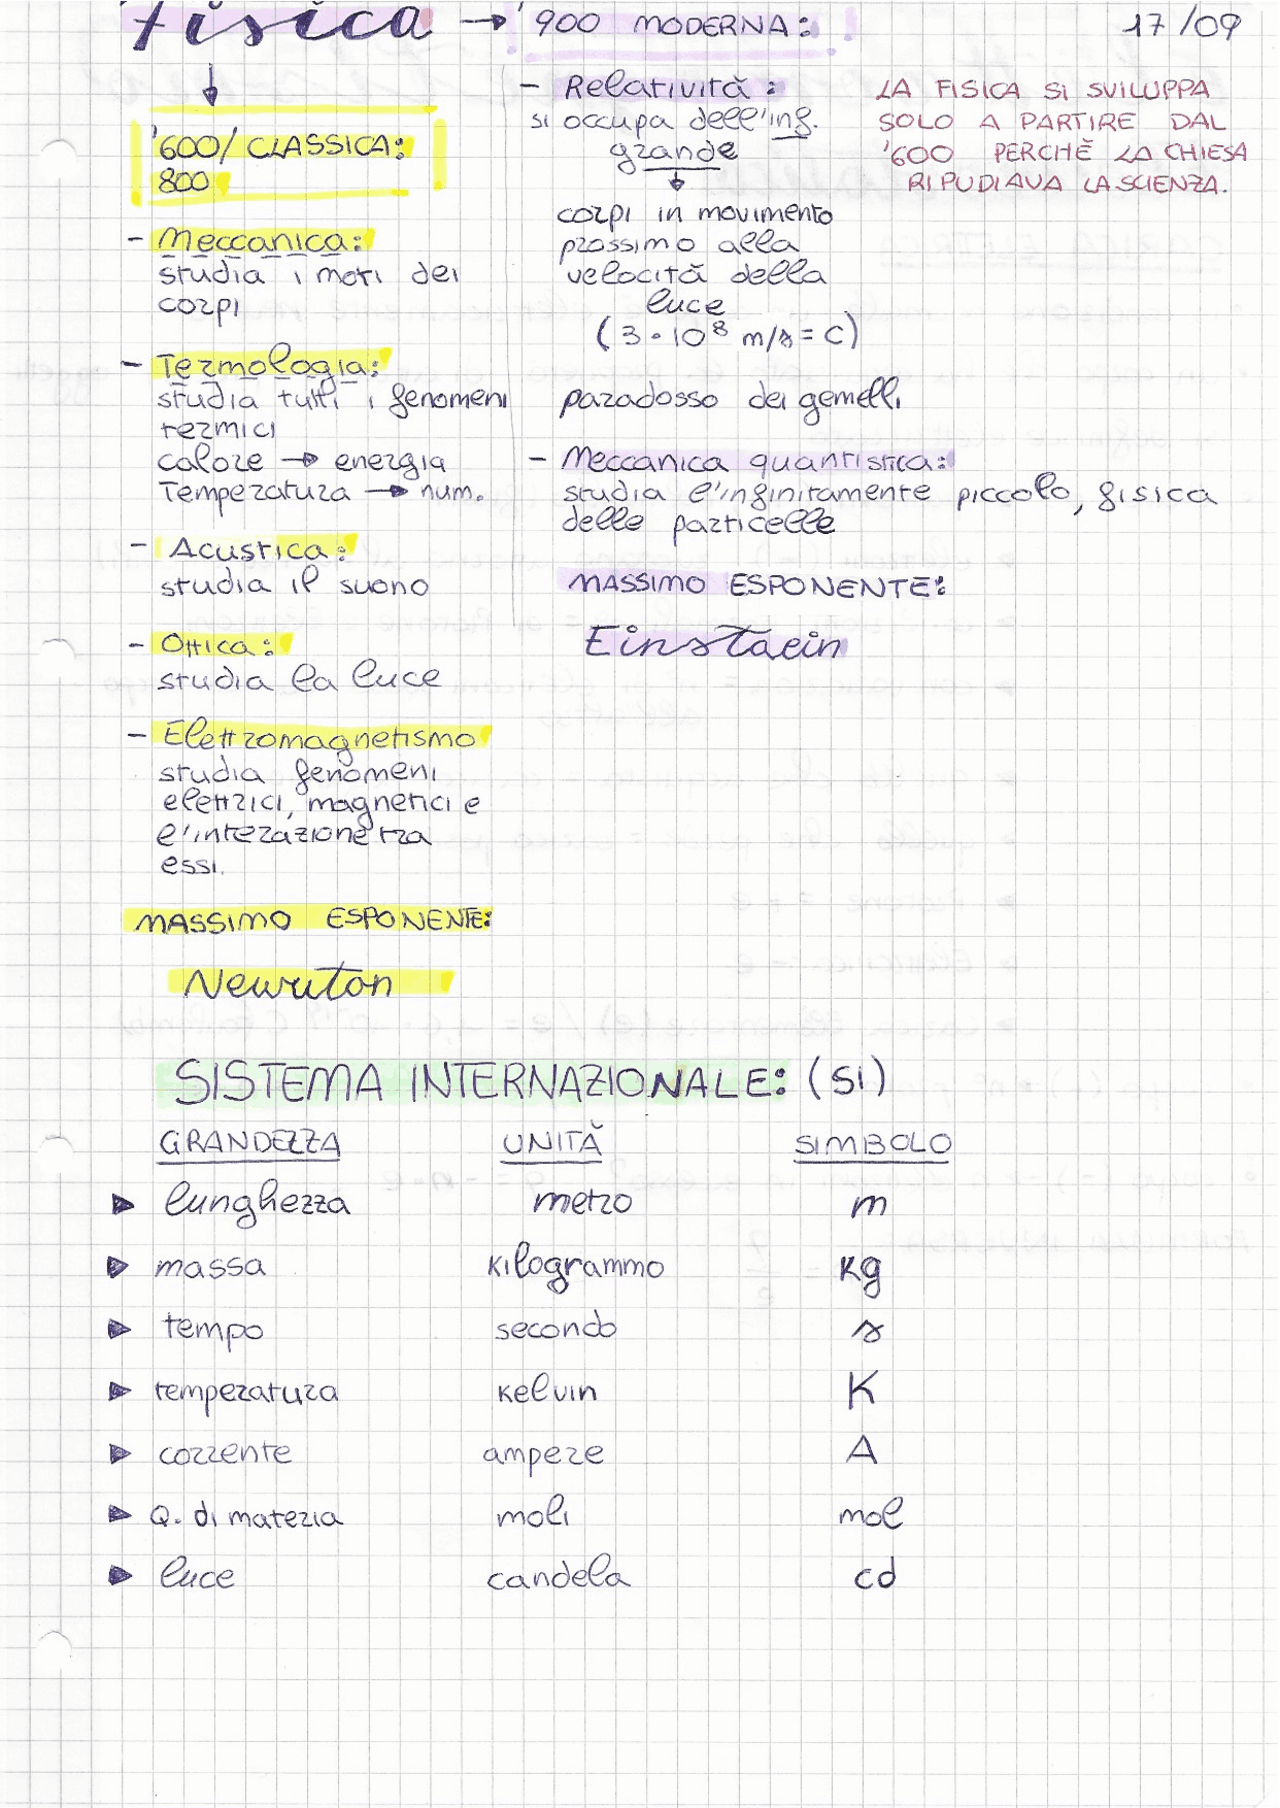 Fisica → '900 MODERNA:
17/09
'600/ CLASSICA:
800
- Meccanica:
studia i moti dei
corpi
- Termologia:
studia tutti i fenomeni
termici
calore → energia
Temperatura → num.
- Acustica:
studia il suono
- Ottica:
studia la luce
- Elettromagnetismo
studia fenomeni
elettrici, magnetici e
l'interazione tra
essi.
MASSIMO ESPONENTE:
Newuton
- Relatività:
si occupa dell'inf.
grande
corpi in movimento
prossimo alla
velocità della
luce
(3·10⁸ m/s = C)
paradosso dei gemelli
- Meccanica quantistica:
studia l'infinitamente piccolo, fisica
delle particelle
MASSIMO ESPONENTE:
Einstaein
LA FISICA SI SVILUPPA
SOLO A PARTIRE DAL
'600 PERCHÈ LA CHIESA
RIPUDIAVA LA SCIENZA.
SISTEMA INTERNAZIONALE: (SI)
GRANDEZZA UNITÀ SIMBOLO
▶ lunghezza metro m
▶ massa kilogrammo kg
▶ tempo secondo s
▶ temperatura kelvin K
▶ corrente ampere A
▶ Q. di materia moli mol
▶ luce candela cd